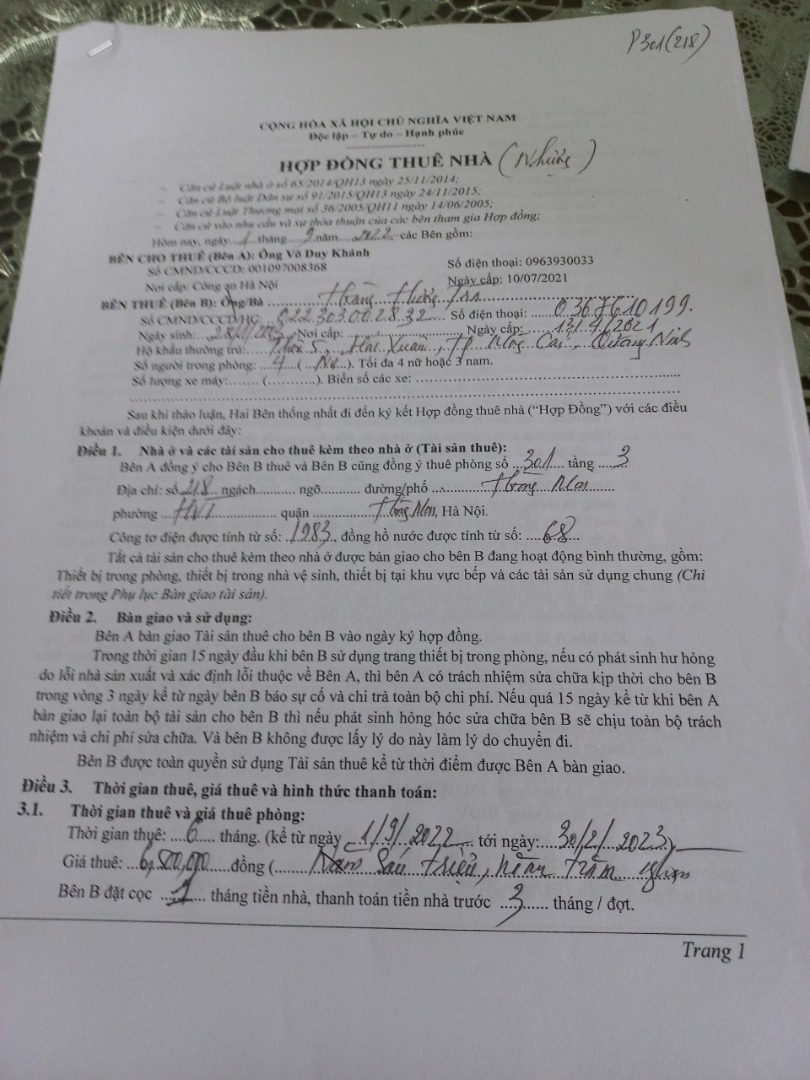 P301(218)
CỘNG HÒA XÃ HỘI CHỦ NGHĨA VIỆT NAM
Độc lập – Tự do – Hạnh phúc
HỢP ĐỒNG THUÊ NHÀ (Nhung)
– Căn cứ Luật nhà ở số 65/2014/QH13 ngày 25/11/2014;
– Căn cứ Bộ luật Dân sự số 91/2015/QH13 ngày 24/11/2015;
– Căn cứ Luật Thương mại số 36/2005/QH11 ngày 14/06/2005;
– Căn cứ vào nhu cầu và sự thỏa thuận của các bên tham gia Hợp đồng;
Hôm nay, ngày 1 tháng 9 năm 2022 các Bên gồm:
BÊN CHO THUÊ (Bên A): Ông Võ Duy Khánh
Số CMND/CCCD: 001097008368 Số điện thoại: 0963930033
Nơi cấp: Công an Hà Nội Ngày cấp: 10/07/2021
BÊN THUÊ (Bên B): Ông/Bà Hoàng Hương
Số CMND/CCCD/HC: 022303002832 Số điện thoại: 0367610199.
Ngày sinh: Nơi cấp: Ngày cấp: 13/4/2021
Hộ khẩu thường trú: Thôn 5, Hải Xuân, TP Móng Cái, Quảng Ninh
Số người trong phòng: 4 (Nữ). Tối đa 4 nữ hoặc 3 nam.
Số lượng xe máy: (). Biển số các xe:
Sau khi thảo luận, Hai Bên thống nhất đi đến ký kết Hợp đồng thuê nhà (“Hợp Đồng”) với các điều
khoản và điều kiện dưới đây:
Điều 1. Nhà ở và các tài sản cho thuê kèm theo nhà ở (Tài sản thuê):
Bên A đồng ý cho Bên B thuê và Bên B cũng đồng ý thuê phòng số 301 tầng 3
Địa chỉ: số 218 ngách ngõ đường/phố Hoàng Mai
phường HVT quận Hoàng Mai, Hà Nội.
Công tơ điện được tính từ số: 1983, đồng hồ nước được tính từ số: 68
Tất cả tài sản cho thuê kèm theo nhà ở được bàn giao cho bên B đang hoạt động bình thường, gồm:
Thiết bị trong phòng, thiết bị trong nhà vệ sinh, thiết bị tại khu vực bếp và các tài sản sử dụng chung (Chi
tiết trong Phụ lục Bàn giao tài sản).
Điều 2. Bàn giao và sử dụng:
Bên A bàn giao Tài sản thuê cho bên B vào ngày ký hợp đồng.
Trong thời gian 15 ngày đầu khi bên B sử dụng trang thiết bị trong phòng, nếu có phát sinh hư hỏng
do lỗi nhà sản xuất và xác định lỗi thuộc về Bên A, thì bên A có trách nhiệm sửa chữa kịp thời cho bên B
trong vòng 3 ngày kể từ ngày bên B báo sự cố và chi trả toàn bộ chi phí. Nếu quá 15 ngày kể từ khi bên A
bàn giao lại toàn bộ tài sản cho bên B thì nếu phát sinh hỏng hóc sửa chữa bên B sẽ chịu toàn bộ trách
nhiệm và chi phí sửa chữa. Và bên B không được lấy lý do này làm lý do chuyển đi.
Bên B được toàn quyền sử dụng Tài sản thuê kể từ thời điểm được Bên A bàn giao.
Điều 3. Thời gian thuê, giá thuê và hình thức thanh toán:
3.1. Thời gian thuê và giá thuê phòng:
Thời gian thuê: 6 tháng. (kể từ ngày 1/9/2022 tới ngày: 30/2/2023)
Giá thuê: 6,500,000 đồng (Năm Sáu triệu, năm trăm nghìn
Bên B đặt cọc 1 tháng tiền nhà, thanh toán tiền nhà trước 3 tháng / đợt.
Trang 1